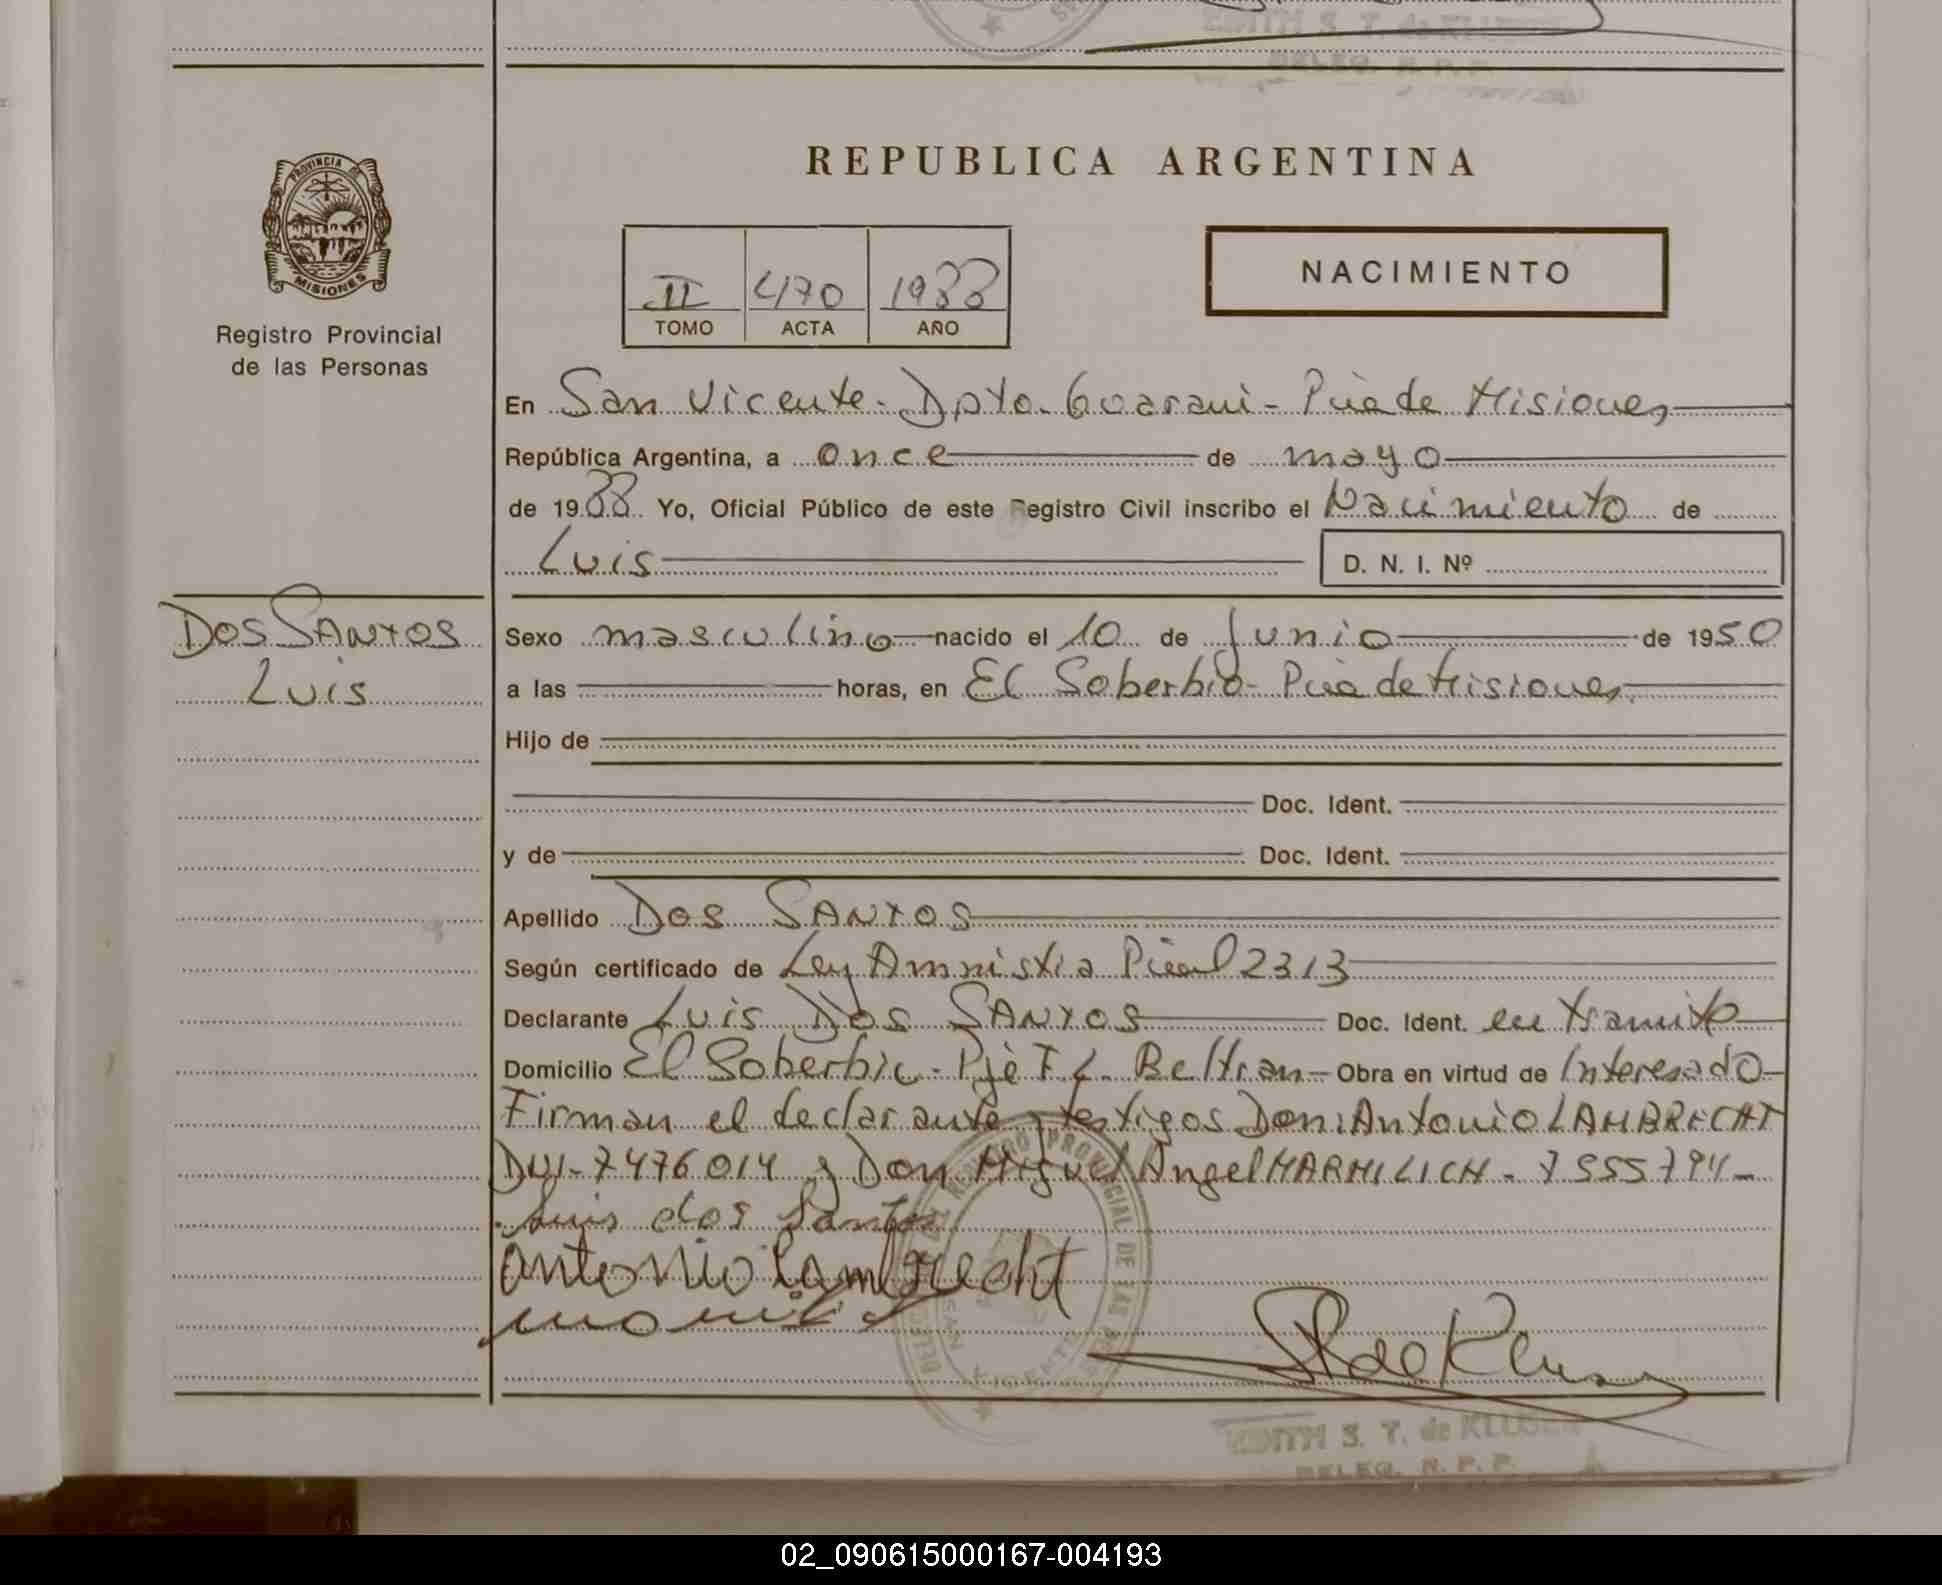 EDITH S. T. de KLUSER
DELEG. R. P. P.
PROVINCIA DE
MISIONES
Registro Provincial
de las Personas
REPUBLICA ARGENTINA
II 470 1988
TOMO ACTA AÑO
NACIMIENTO
En San Vicente - Dpto. Guaraní - Pcia de Misiones
República Argentina, a once de mayo
de 1988 Yo, Oficial Público de este Registro Civil inscribo el Nacimiento de
Luis D. N. I. Nº
Dos Santos
Luis
Sexo masculino nacido el 10 de Junio de 1950
a las horas, en El Soberbio - Pcia de Misiones
Hijo de
Doc. Ident.
y de Doc. Ident.
Apellido Dos Santos
Según certificado de Ley Amnistia Pcial 2313
Declarante Luis Dos Santos Doc. Ident. en tramite
Domicilio El Soberbio - Pje F. L. Beltran Obra en virtud de Interesado
Firman el declarante y testigos Don: Antonio LAMBRECHT
DNI - 7476014 y Don Miguel Angel MARMILICH - 7555794 -
Luis dos Santos
antonio lambrecht
REGISTRO PROVINCIAL DE LAS
SAN VICENTE
EDITH S. T. de KLUSER
DELEG. R. P. P.
02_090615000167-004193